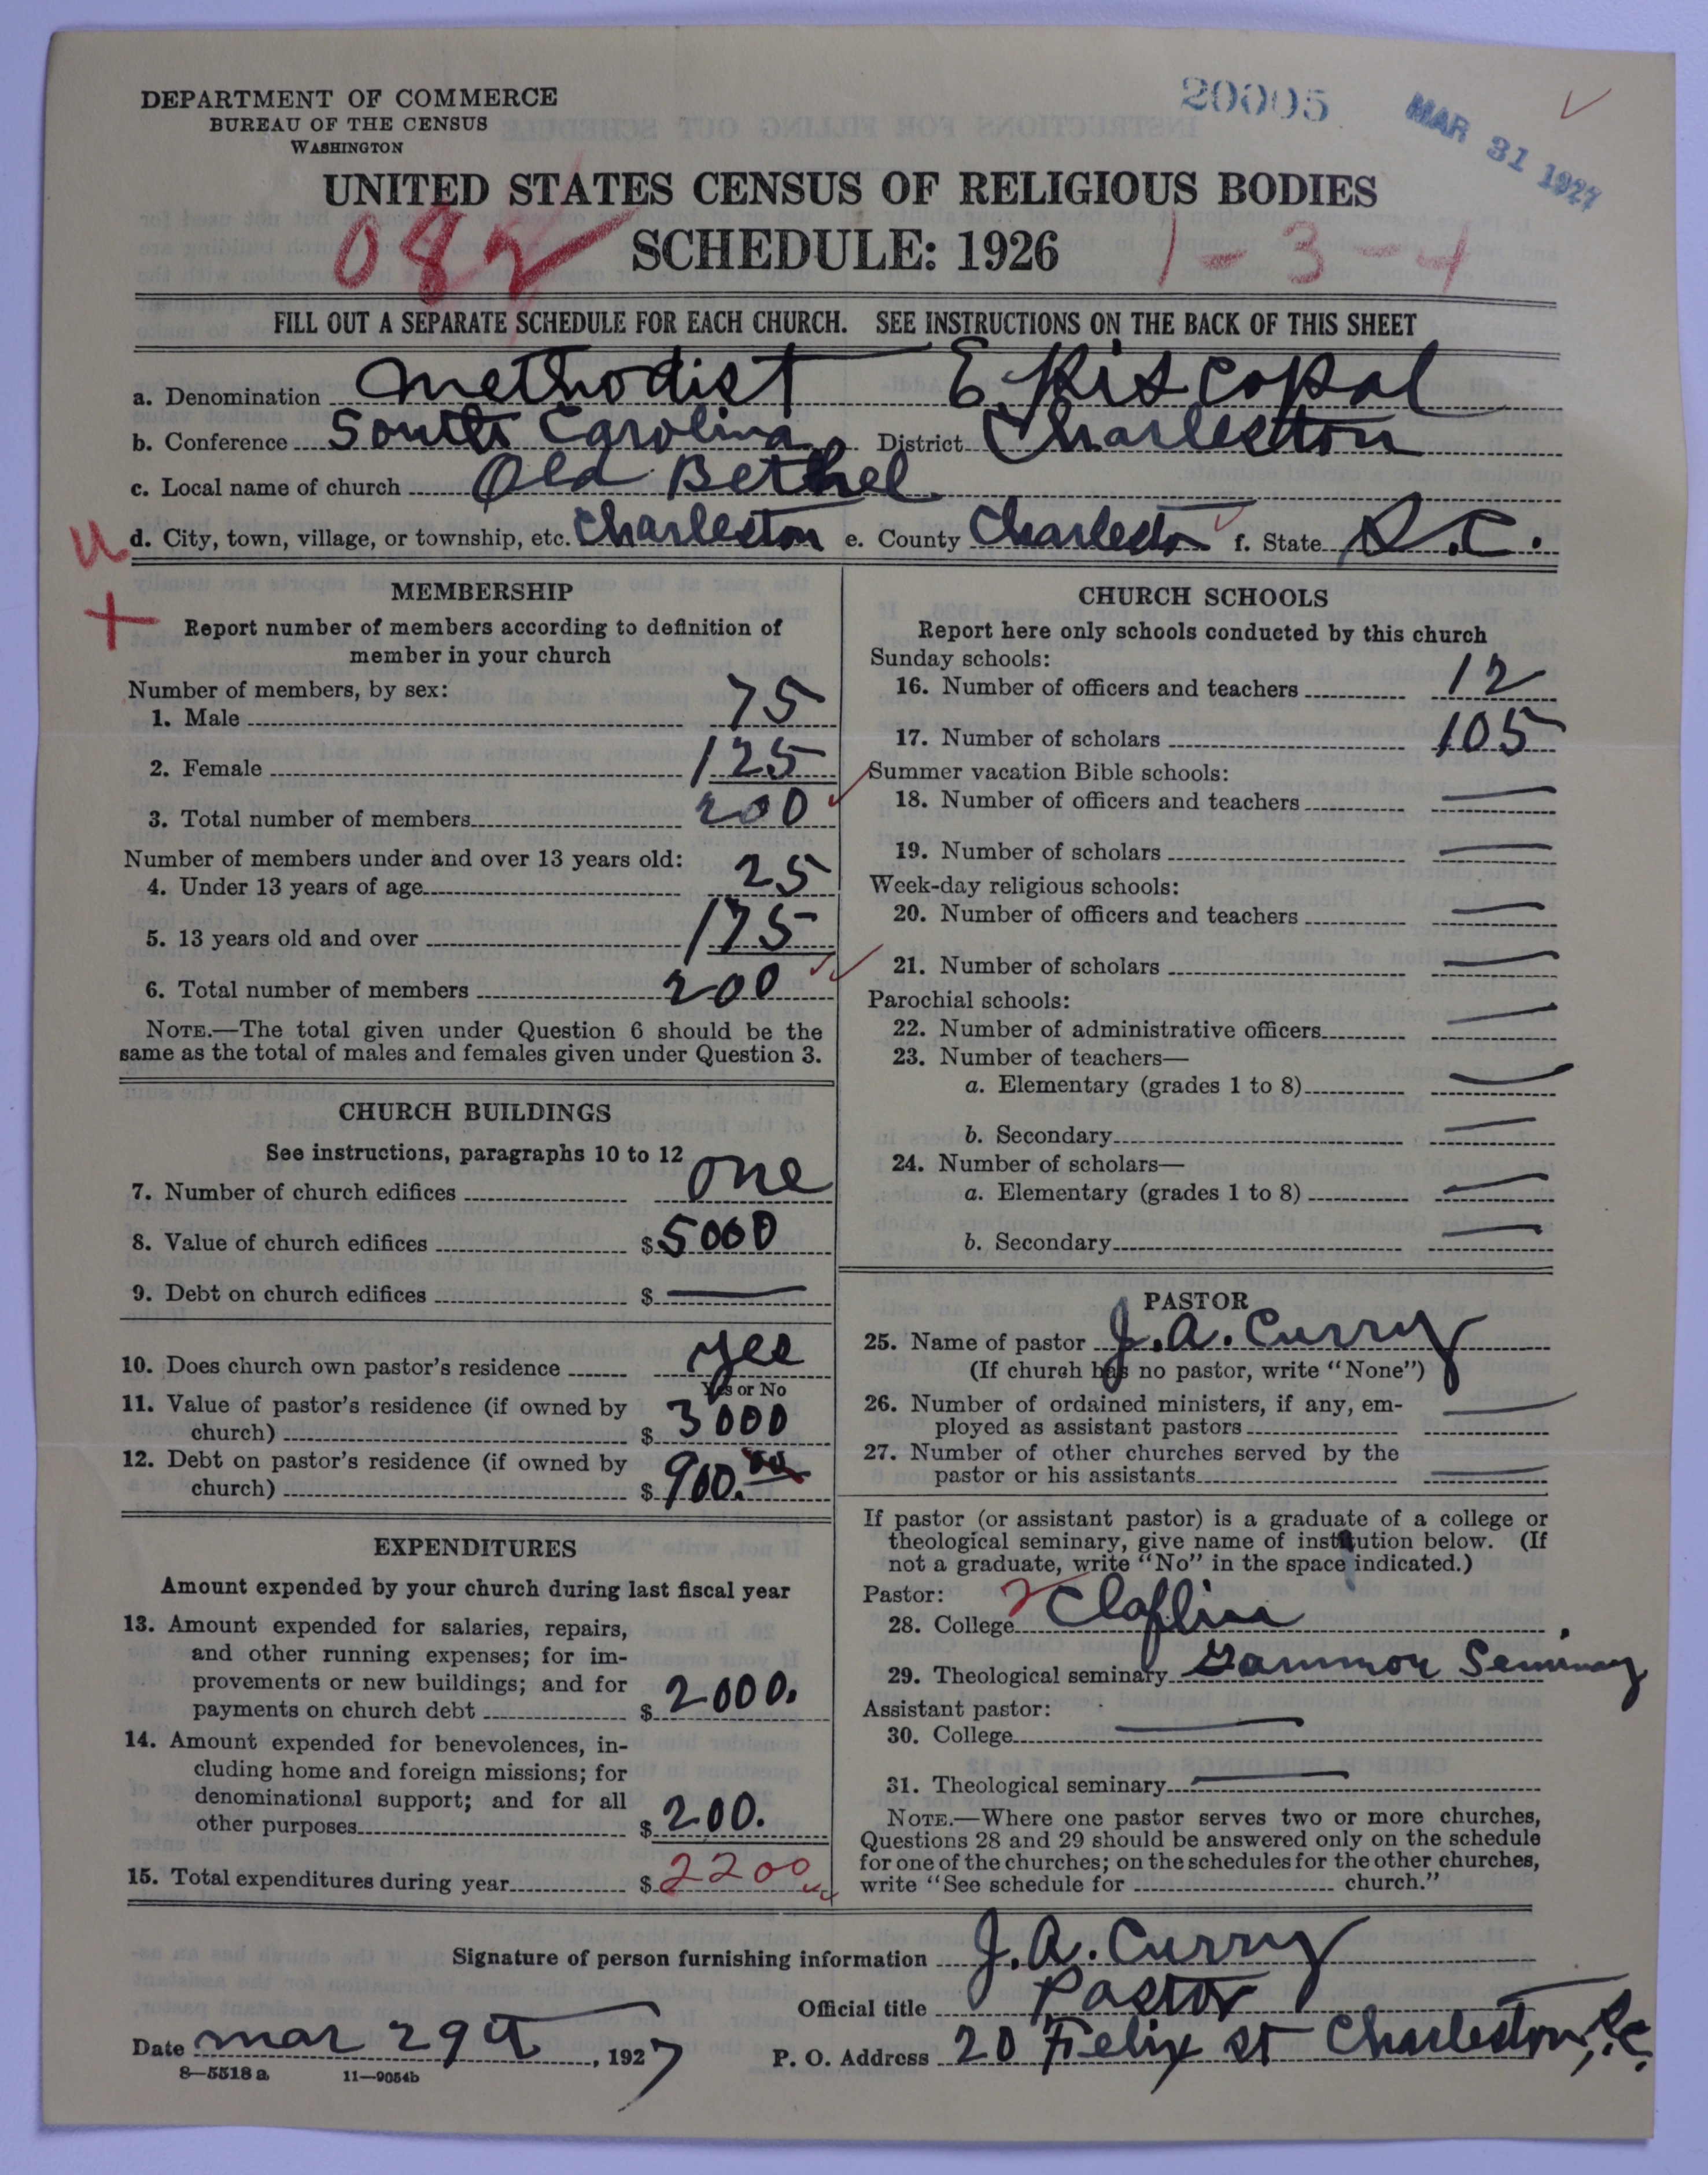 DEPARTMENT OF COMMERCE
BUREAU OF THE CENSUS
WASHINGTON
20005
MAR 31 1927
UNITED STATES CENSUS OF RELIGIOUS BODIES
082
SCHEDULE: 1926
1-3-4
FILL OUT A SEPARATE SCHEDULE FOR EACH CHURCH. SEE INSTRUCTIONS ON THE BACK OF THIS SHEET
a. Denomination Methodist Episcopal
b. Conference South Carolina District Charleston
c. Local name of church Old Bethel
u d. City, town, village, or township, etc. Charleston e. County Charleston f. State S.C.
MEMBERSHIP
Report number of members according to definition of
member in your church
Number of members, by sex:
1. Male 75
2. Female 125
3. Total number of members 200
Number of members under and over 13 years old:
4. Under 13 years of age 25
5. 13 years old and over 175
6. Total number of members 200
NOTE.—The total given under Question 6 should be the
same as the total of males and females given under Question 3.
CHURCH BUILDINGS
See instructions, paragraphs 10 to 12
7. Number of church edifices one
8. Value of church edifices $ 5000
9. Debt on church edifices $ —
10. Does church own pastor's residence yes
Yes or No
11. Value of pastor's residence (if owned by
church) $ 3000
12. Debt on pastor's residence (if owned by
church) $ 900.00
EXPENDITURES
Amount expended by your church during last fiscal year
13. Amount expended for salaries, repairs,
and other running expenses; for im-
provements or new buildings; and for
payments on church debt $ 2000.
14. Amount expended for benevolences, in-
cluding home and foreign missions; for
denominational support; and for all
other purposes $ 200.
15. Total expenditures during year $ 2200
CHURCH SCHOOLS
Report here only schools conducted by this church
Sunday schools:
16. Number of officers and teachers 12
17. Number of scholars 105
Summer vacation Bible schools:
18. Number of officers and teachers —
19. Number of scholars —
Week-day religious schools:
20. Number of officers and teachers —
21. Number of scholars —
Parochial schools:
22. Number of administrative officers —
23. Number of teachers—
a. Elementary (grades 1 to 8) —
b. Secondary —
24. Number of scholars—
a. Elementary (grades 1 to 8) —
b. Secondary —
PASTOR
25. Name of pastor J.A. Curry
(If church has no pastor, write "None")
26. Number of ordained ministers, if any, em-
ployed as assistant pastors —
27. Number of other churches served by the
pastor or his assistants —
If pastor (or assistant pastor) is a graduate of a college or
theological seminary, give name of institution below. (If
not a graduate, write "No" in the space indicated.)
Pastor:
28. College 2 Claflin
29. Theological seminary Gammon Seminary
Assistant pastor:
30. College —
31. Theological seminary —
NOTE.—Where one pastor serves two or more churches,
Questions 28 and 29 should be answered only on the schedule
for one of the churches; on the schedules for the other churches,
write "See schedule for church."
Signature of person furnishing information J.A. Curry
Official title Pastor
Date Mar 29th, 1927 P. O. Address 20 Felix St Charleston, S.C.
8—5518 a 11—9054b